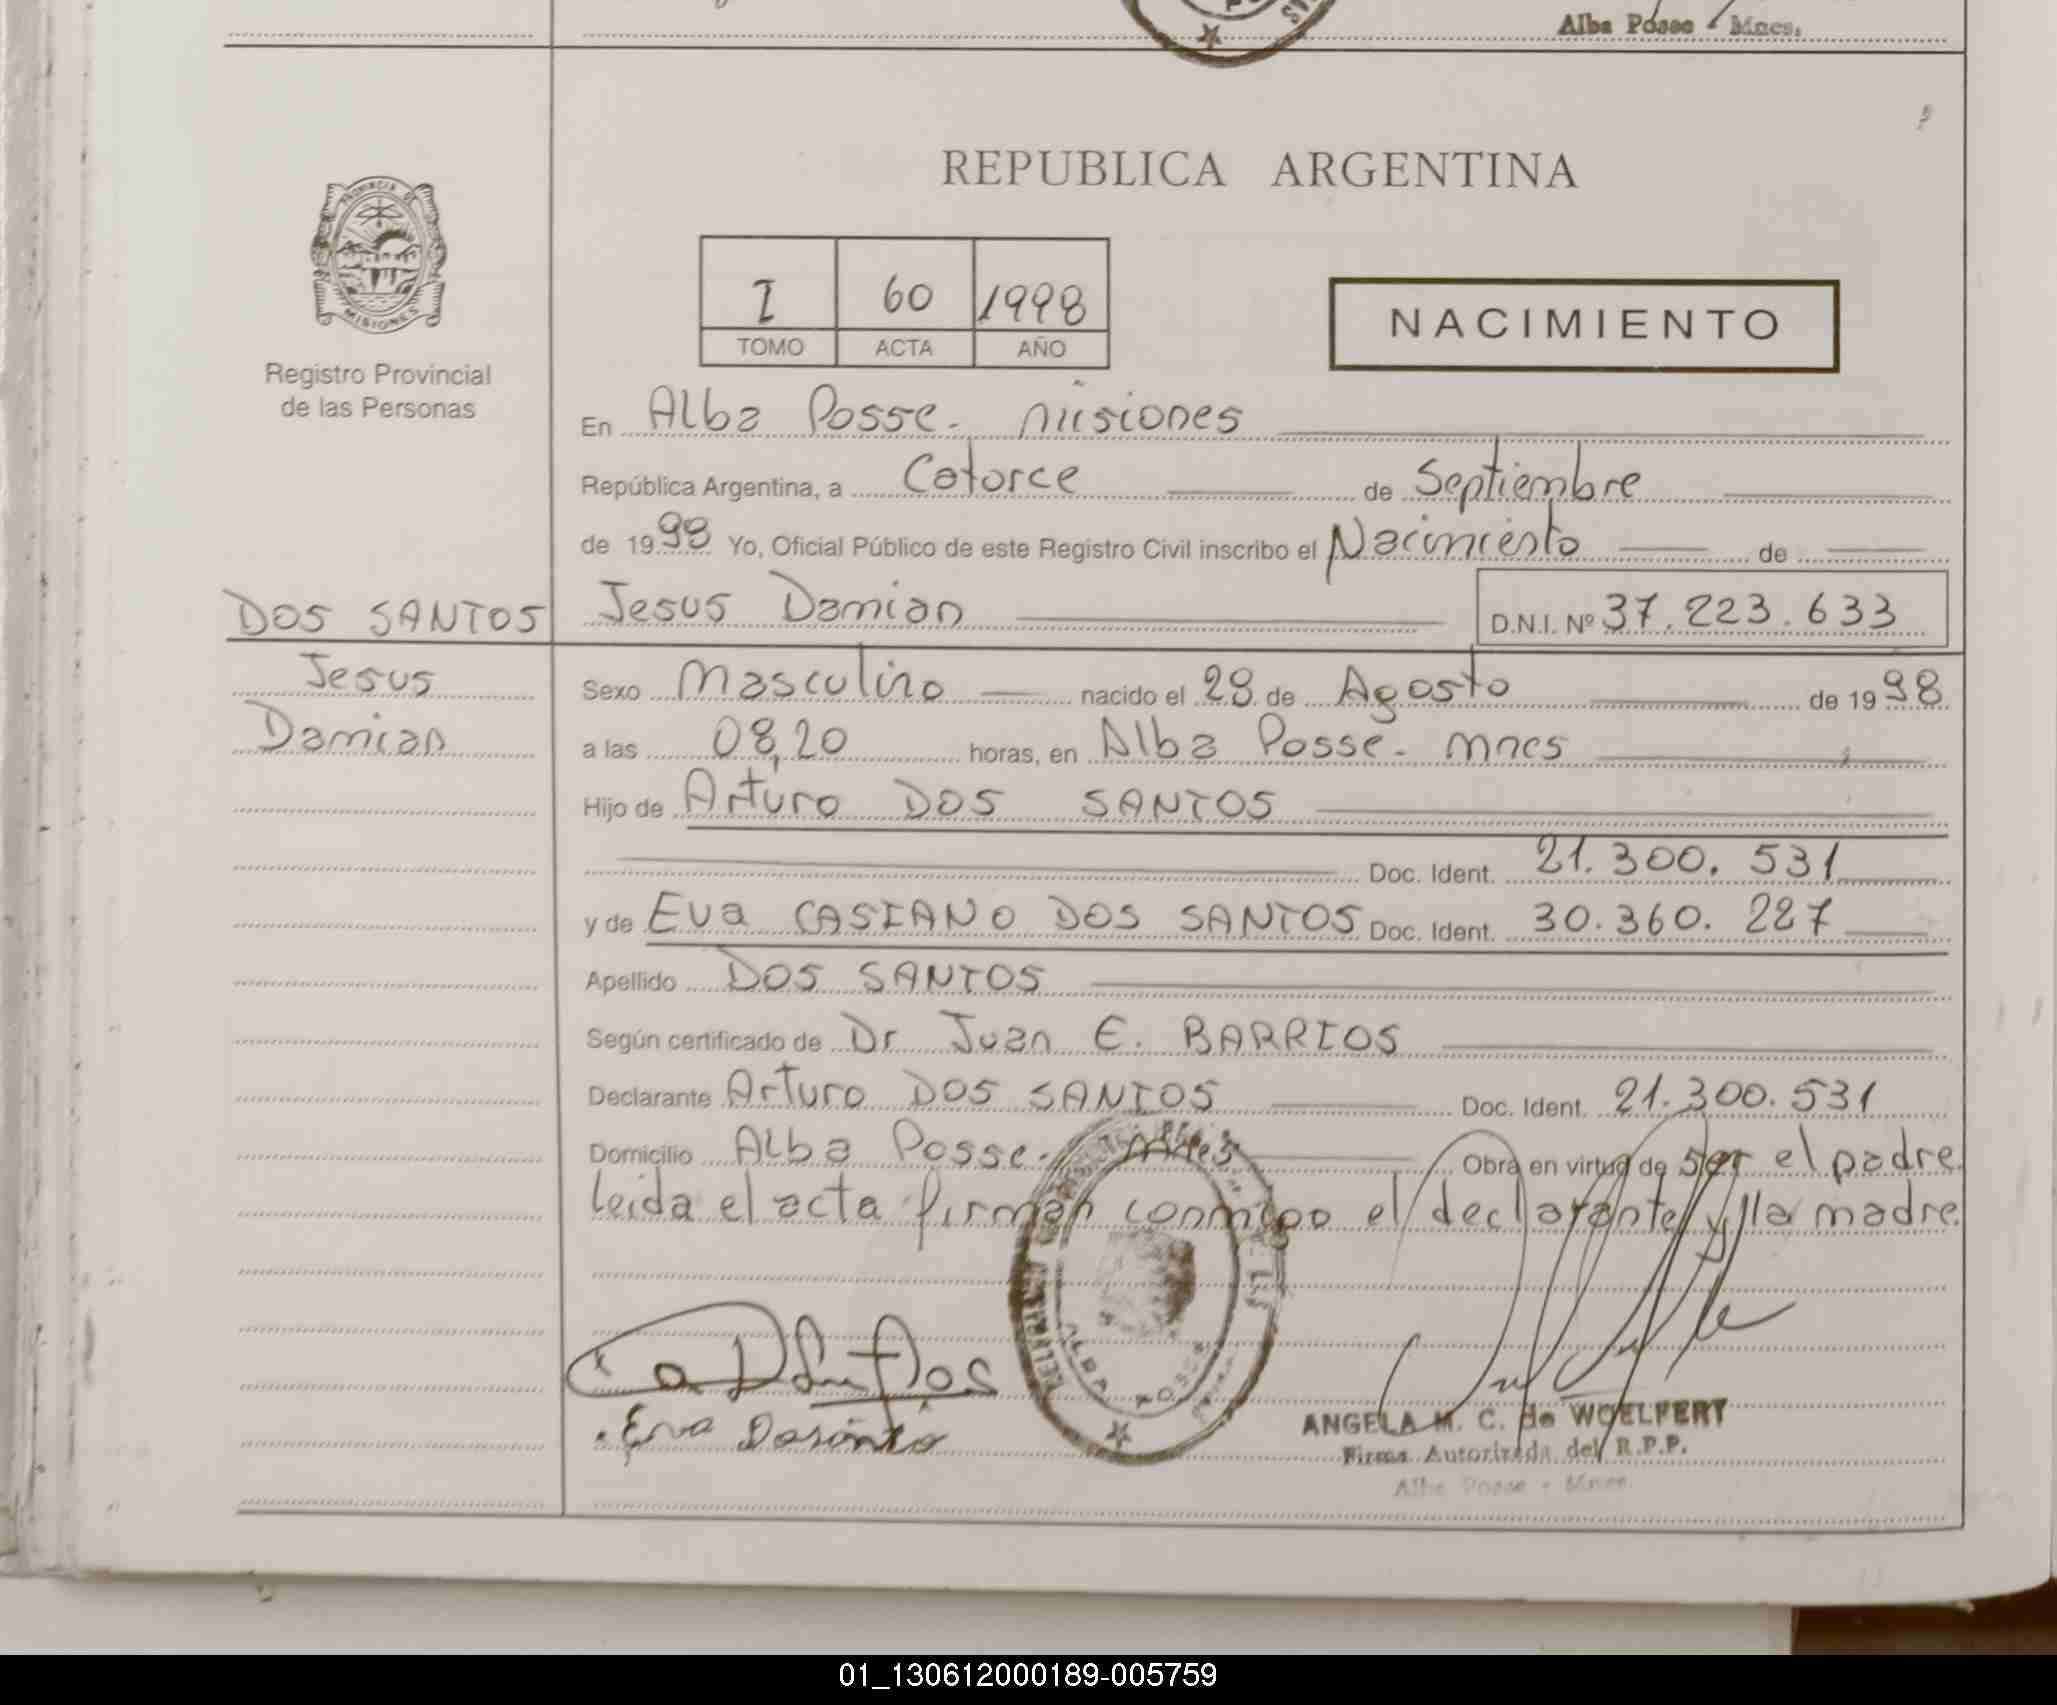 Alba Posse - Mnes.
REPUBLICA ARGENTINA
PROVINCIA DE
MISIONES
Registro Provincial
de las Personas
I 60 1998
TOMO ACTA AÑO
NACIMIENTO
En Alba Posse - Misiones
República Argentina, a Catorce de Septiembre
de 1998 Yo, Oficial Público de este Registro Civil inscribo el Nacimiento de
DOS SANTOS Jesus Damian D.N.I. Nº 37.223.633
Jesus
Damian
Sexo Masculino nacido el 28 de Agosto de 1998
a las 08,20 horas, en Alba Posse - Mnes
Hijo de Arturo DOS SANTOS
Doc. Ident. 21.300.531
y de Eva CASIANO DOS SANTOS Doc. Ident. 30.360.227
Apellido DOS SANTOS
Según certificado de Dr Juan E. BARRIOS
Declarante Arturo DOS SANTOS Doc. Ident. 21.300.531
Domicilio Alba Posse - Mnes Obra en virtud de ser el padre.
leida el acta firman conmigo el declarante y la madre.
ALBA POSSE
Eva
ANGELA M. C. de WOELFERT
Firma Autorizada del R.P.P.
Alba Posse - Mnes.
01_130612000189-005759